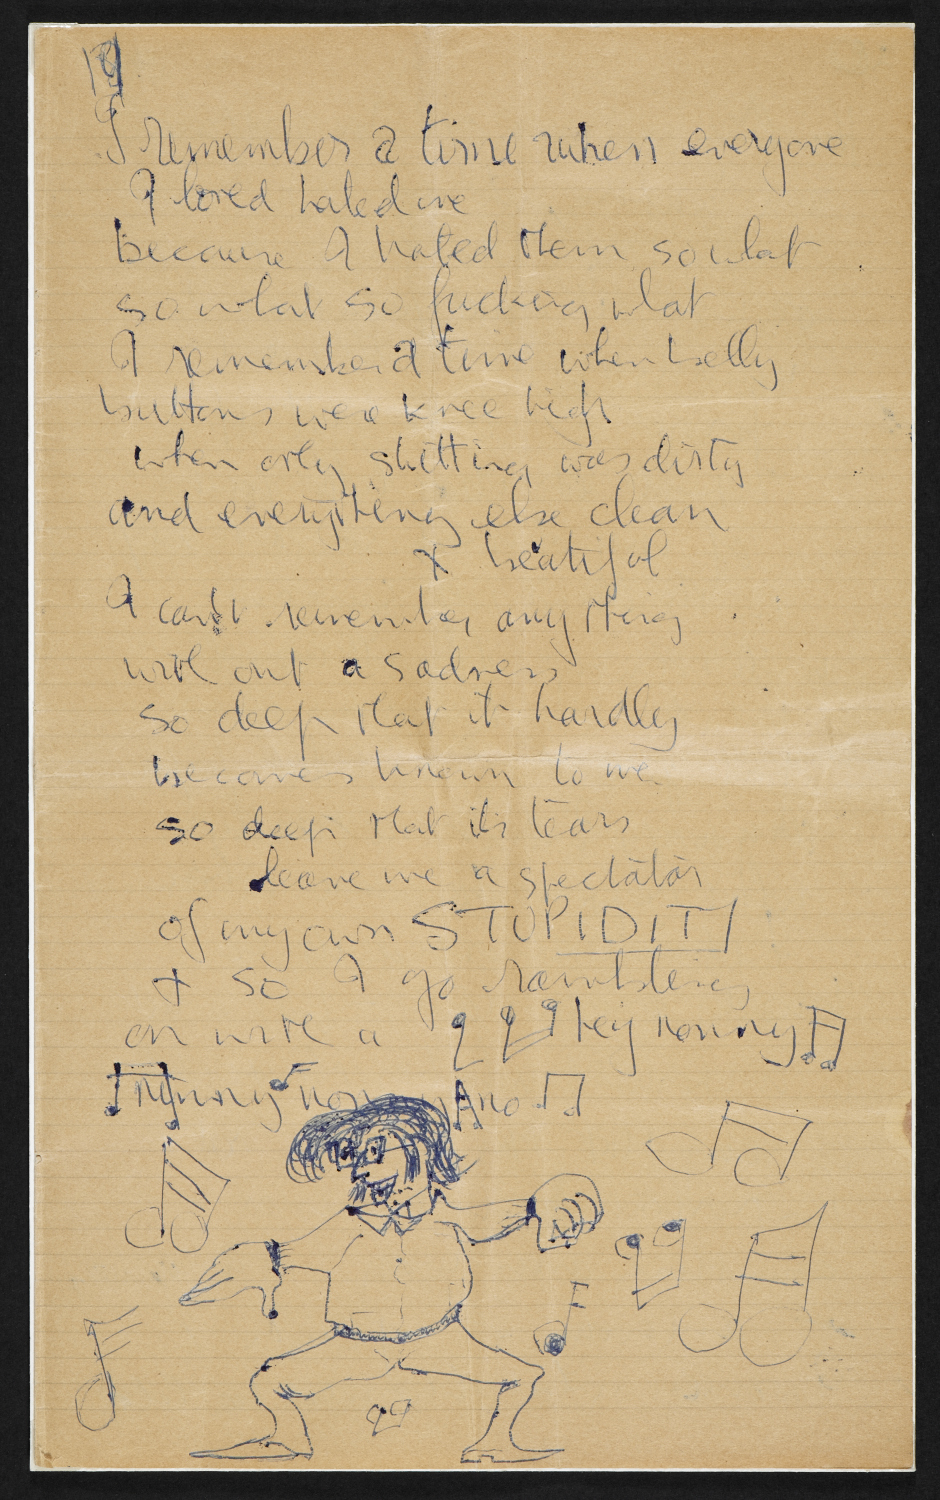 19
I remember a time when everyone
I loved hated me
because I hated them so what
so what so fucking what
I remember a time when belly
buttons were knee high
when only shitting was dirty
and everything else clean
+ beatiful
I can't remember anything
without a sadness
so deep that it hardly
becomes known to me
so deep that its tears
leave me a spectator
of my own STUPIDITY
+ so I go rambling
on with a hey nonny
nonny nonny no